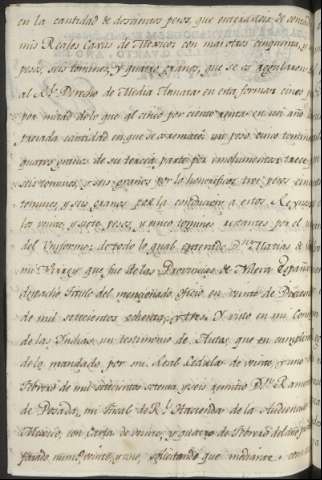 en la cantidad de doscientos pesos, que enterandose de contado
mis Reales Caxas de Mexico con mas otros cinquenta, y
pesos, seis tomines, y quatro granos, que se os regularon
al Rl. Dro de Media Annata en esta forma: cinco
por mitad de lo que al cinco por ciento en un año
cantidad en que se rematò: un peso, cinco tomines
quatro granos de su tercia parte por emolumentos: trece
seis tomines, y seis granos por lo honorifico: tres pesos, cinco
tomines, y seis granos por la conduccion à estos Reynos
los veinte, y siete, pesos, y cinco tomines restantes por el
del Uniforme: de todo lo qual enterado Dn. Matias de
mi Virrey que fue de las Provincias de Nueva España
despachò Titulo del mencionado Oficio en veinte de
de mil setecientos ochenta, y tres. Y visto en mi Consejo
de las Indias un testimonio de Autos que en cumplimiento
de lo mandado, por mi Real Cedula de veinte, y uno
Febrero de mil setecientos setenta, y seis remitiò Dn. Ramon
de Posada, mi Fiscal de Rl. Hacienda de la Audiencia
Mexico, con Carta de veinte, y quatro de Febrero del año
pasado numo. veinte, y uno, solicitando que mediante